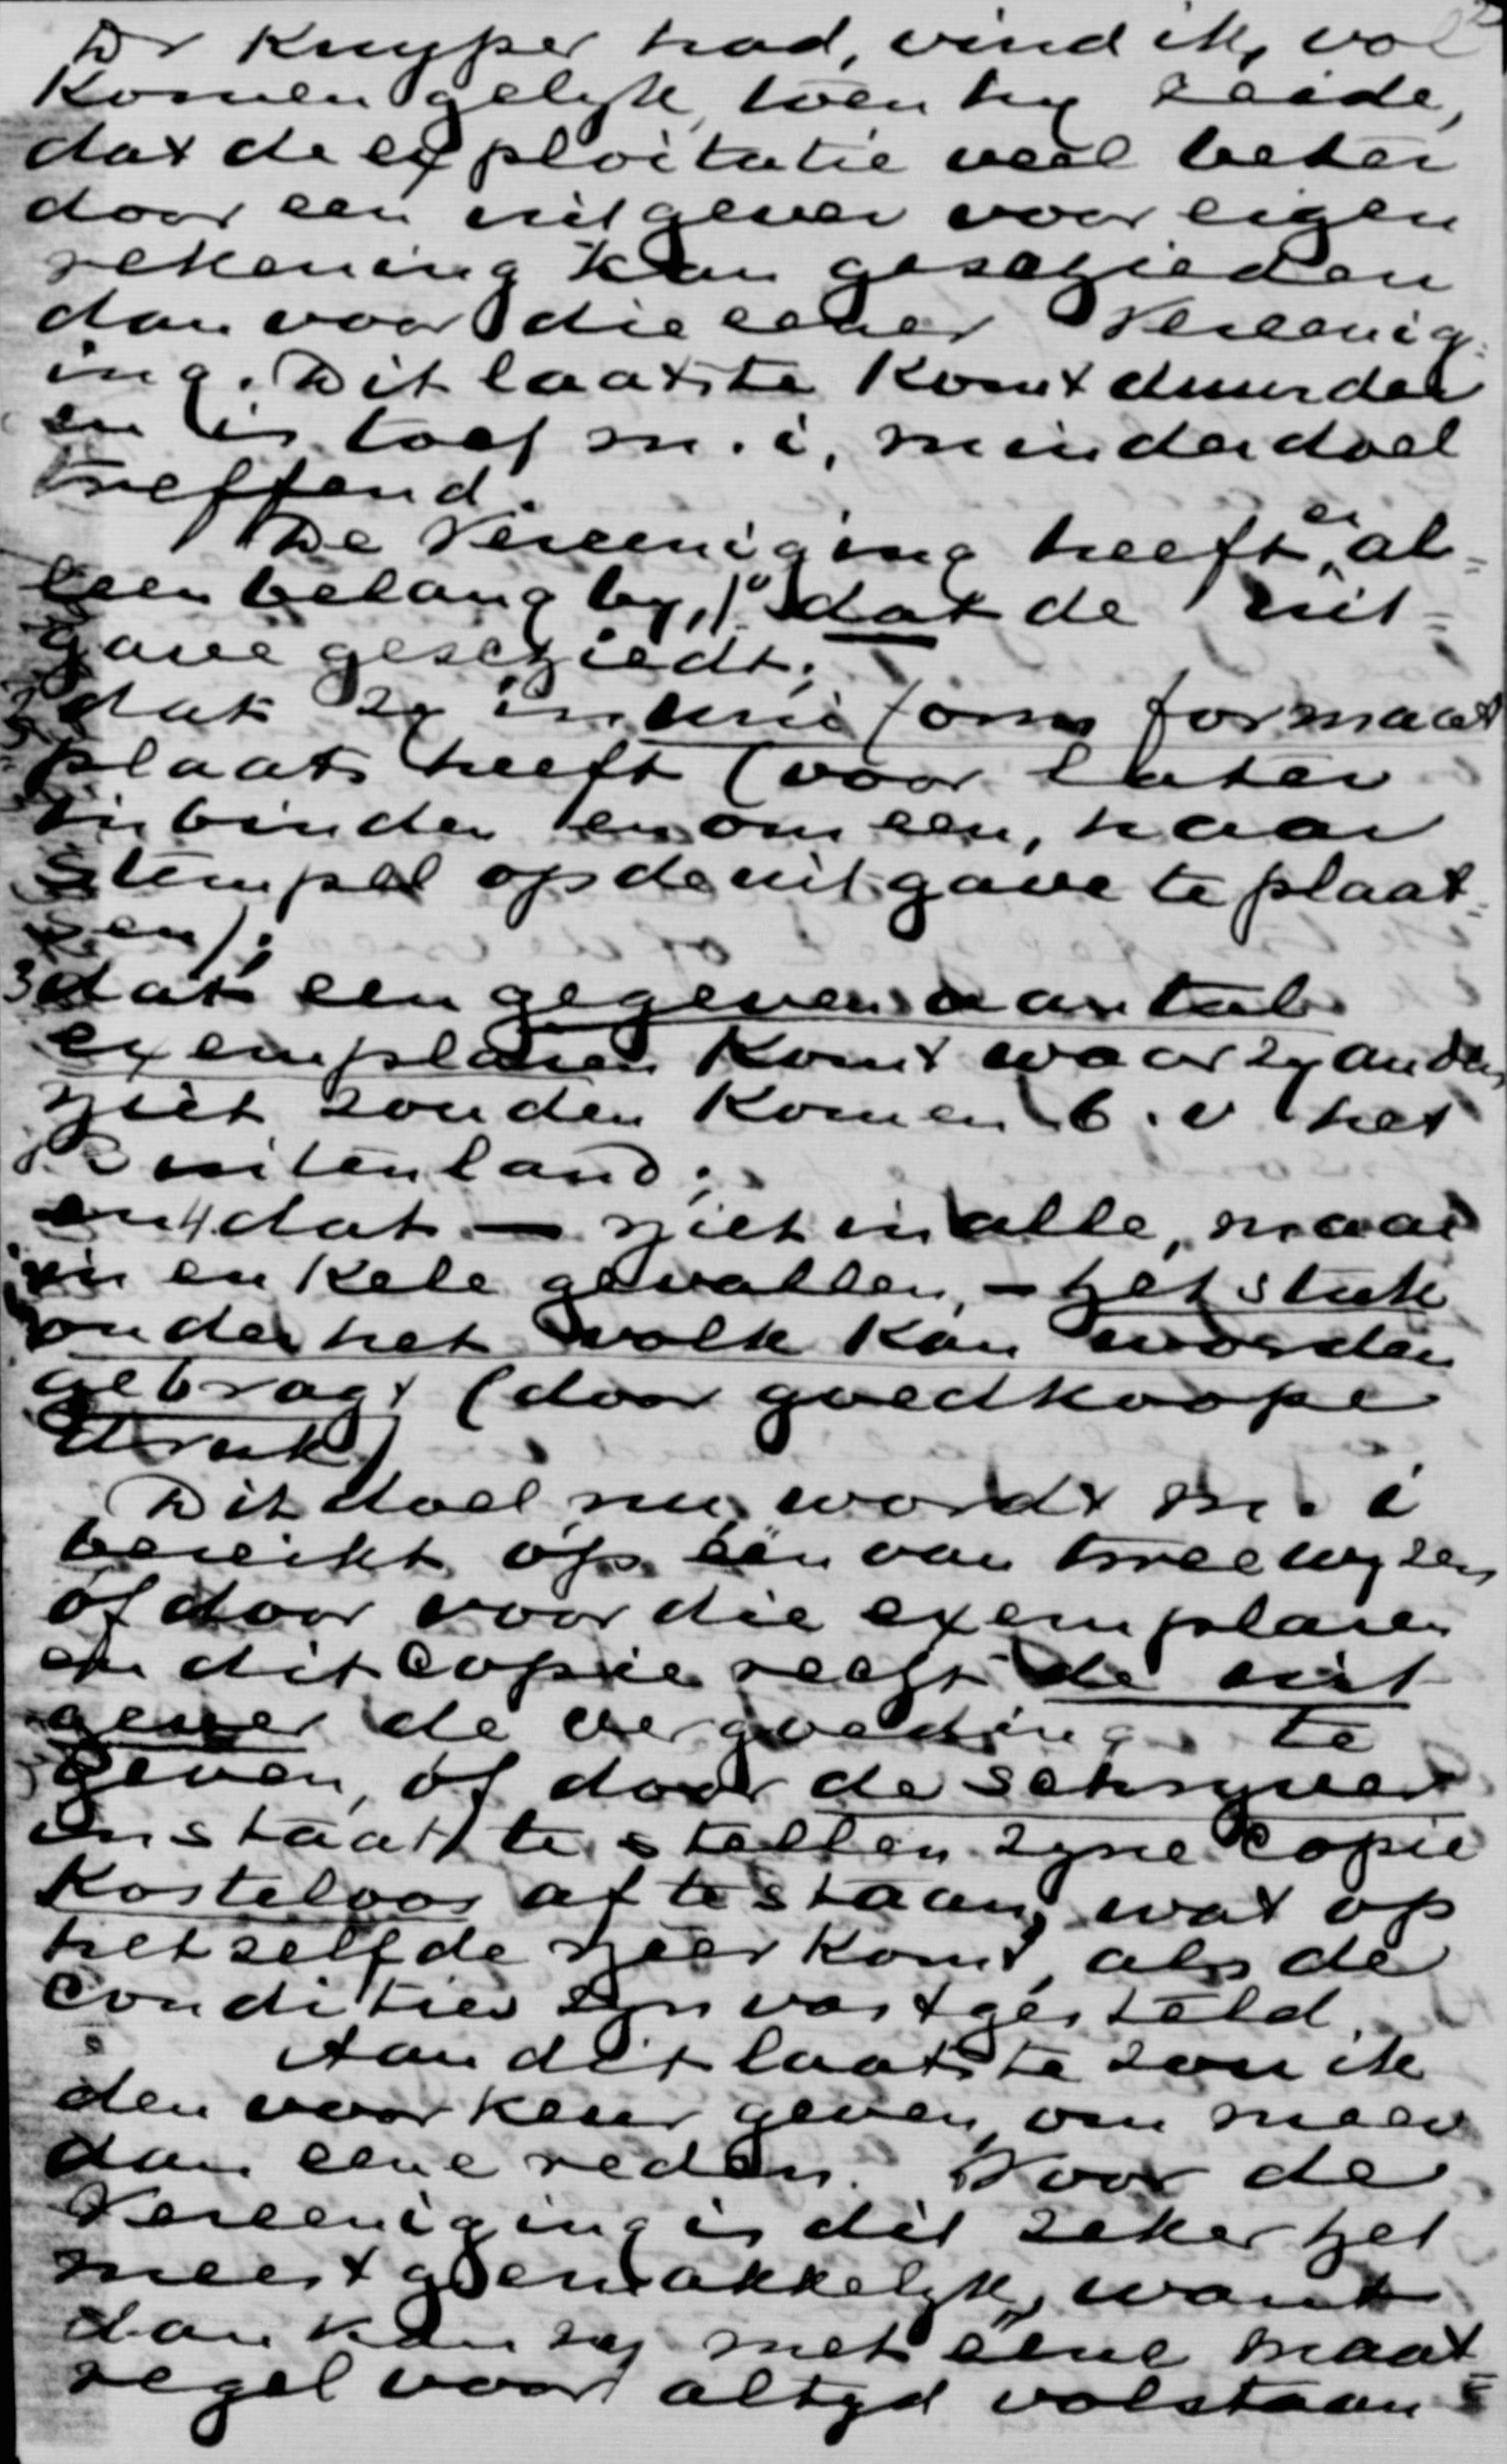 Dr Kuyper had, vind ik, vol
komen gelijk, toen hij zeide,
dat de exploitatie veel beter
door een uitgever voor eigen
rekening kan geschieden
dan voor die eener Vereenig-
ing. Dit laatste komt duurder
en is toch m.i. minder doel
treffend.
De Vereeniging heeft er al-
leen belang bij, 1° dat de uit-
gave geschiedt;
2 dat zij in uniform formaat
plaats heeft (voor later
inbinden en om een, haar
stempel op de uitgave te plaat-
sen);
3 dat een gegeven aantal
exemplaren komt waar zij anders
niet zouden komen b.v. het
Buitenland;
en 4 dat — niet in alle, maar
in enkele gevallen, - het stuk
onder het volk kan worden
gebragt (door goedkoope
druk)
Dit doel nu wordt m.i
bereikt op één van twee wijzen,
óf door voor die exemplaren
en dit copierecht de uit
gever de vergoeding te
geven, óf door de schrijver
in staat te stellen zijne copie
kosteloos af te staan, wat op
hetzelfde neerkomt, als de
condities zijn vastgesteld.
Aan dit laatste zou ik
den voorkeur geven, om meer
dan eene reden. Voor de
Vereeniging is dit zeker het
meest gemakkelijk, want
dan kan zij met eene maat
regel voor altijd volstaan